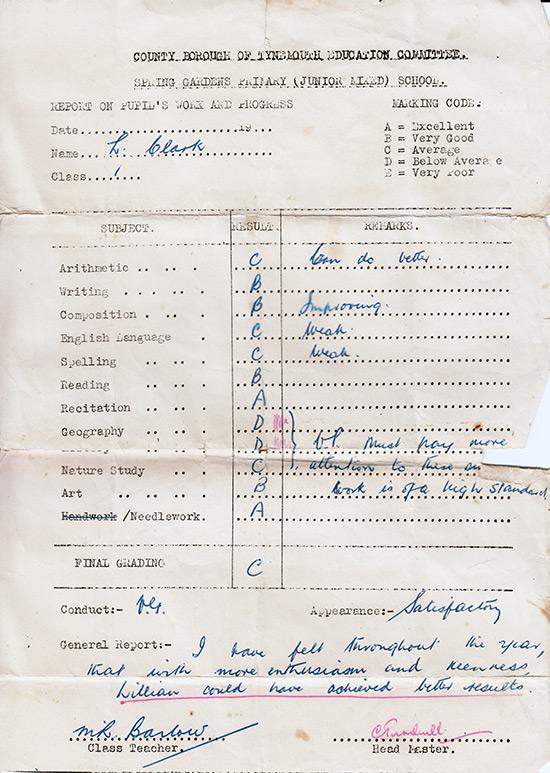 COUNTY BOROUGH OF TYNEMOUTH EDUCATION COMMITTEE.
SPRING GARDENS PRIMARY (JUNIOR MIXED) SCHOOL.
REPORT ON PUPIL'S WORK AND PROGRESS MARKING CODE:
Date..............................19... A = Excellent
Name... L. Clark B = Very Good
C = Average
Class....1...... D = Below Average
E = Very Poor
SUBJECT. RESULT. REMARKS.
Arithmetic .. .. . C Can do better.
Writing .. .. . B
Composition .. .. . B Improving.
English Language . C Weak.
Spelling .. .. . C Weak.
Reading .. .. . B
Recitation .. .. . A
Geography .. .. . D
D V.P. Must pay more
Nature Study .. . C attention to these
Art .. .. . B Work is of a high standard
Handwork /Needlework. A
FINAL GRADING C
Conduct:- V.G. Appearance:- Satisfactory
General Report:- I have felt throughout the year,
that with more enthusiasm and keenness,
Lillian could have achieved better results.
M R Barlow
Class Teacher. Head Master.